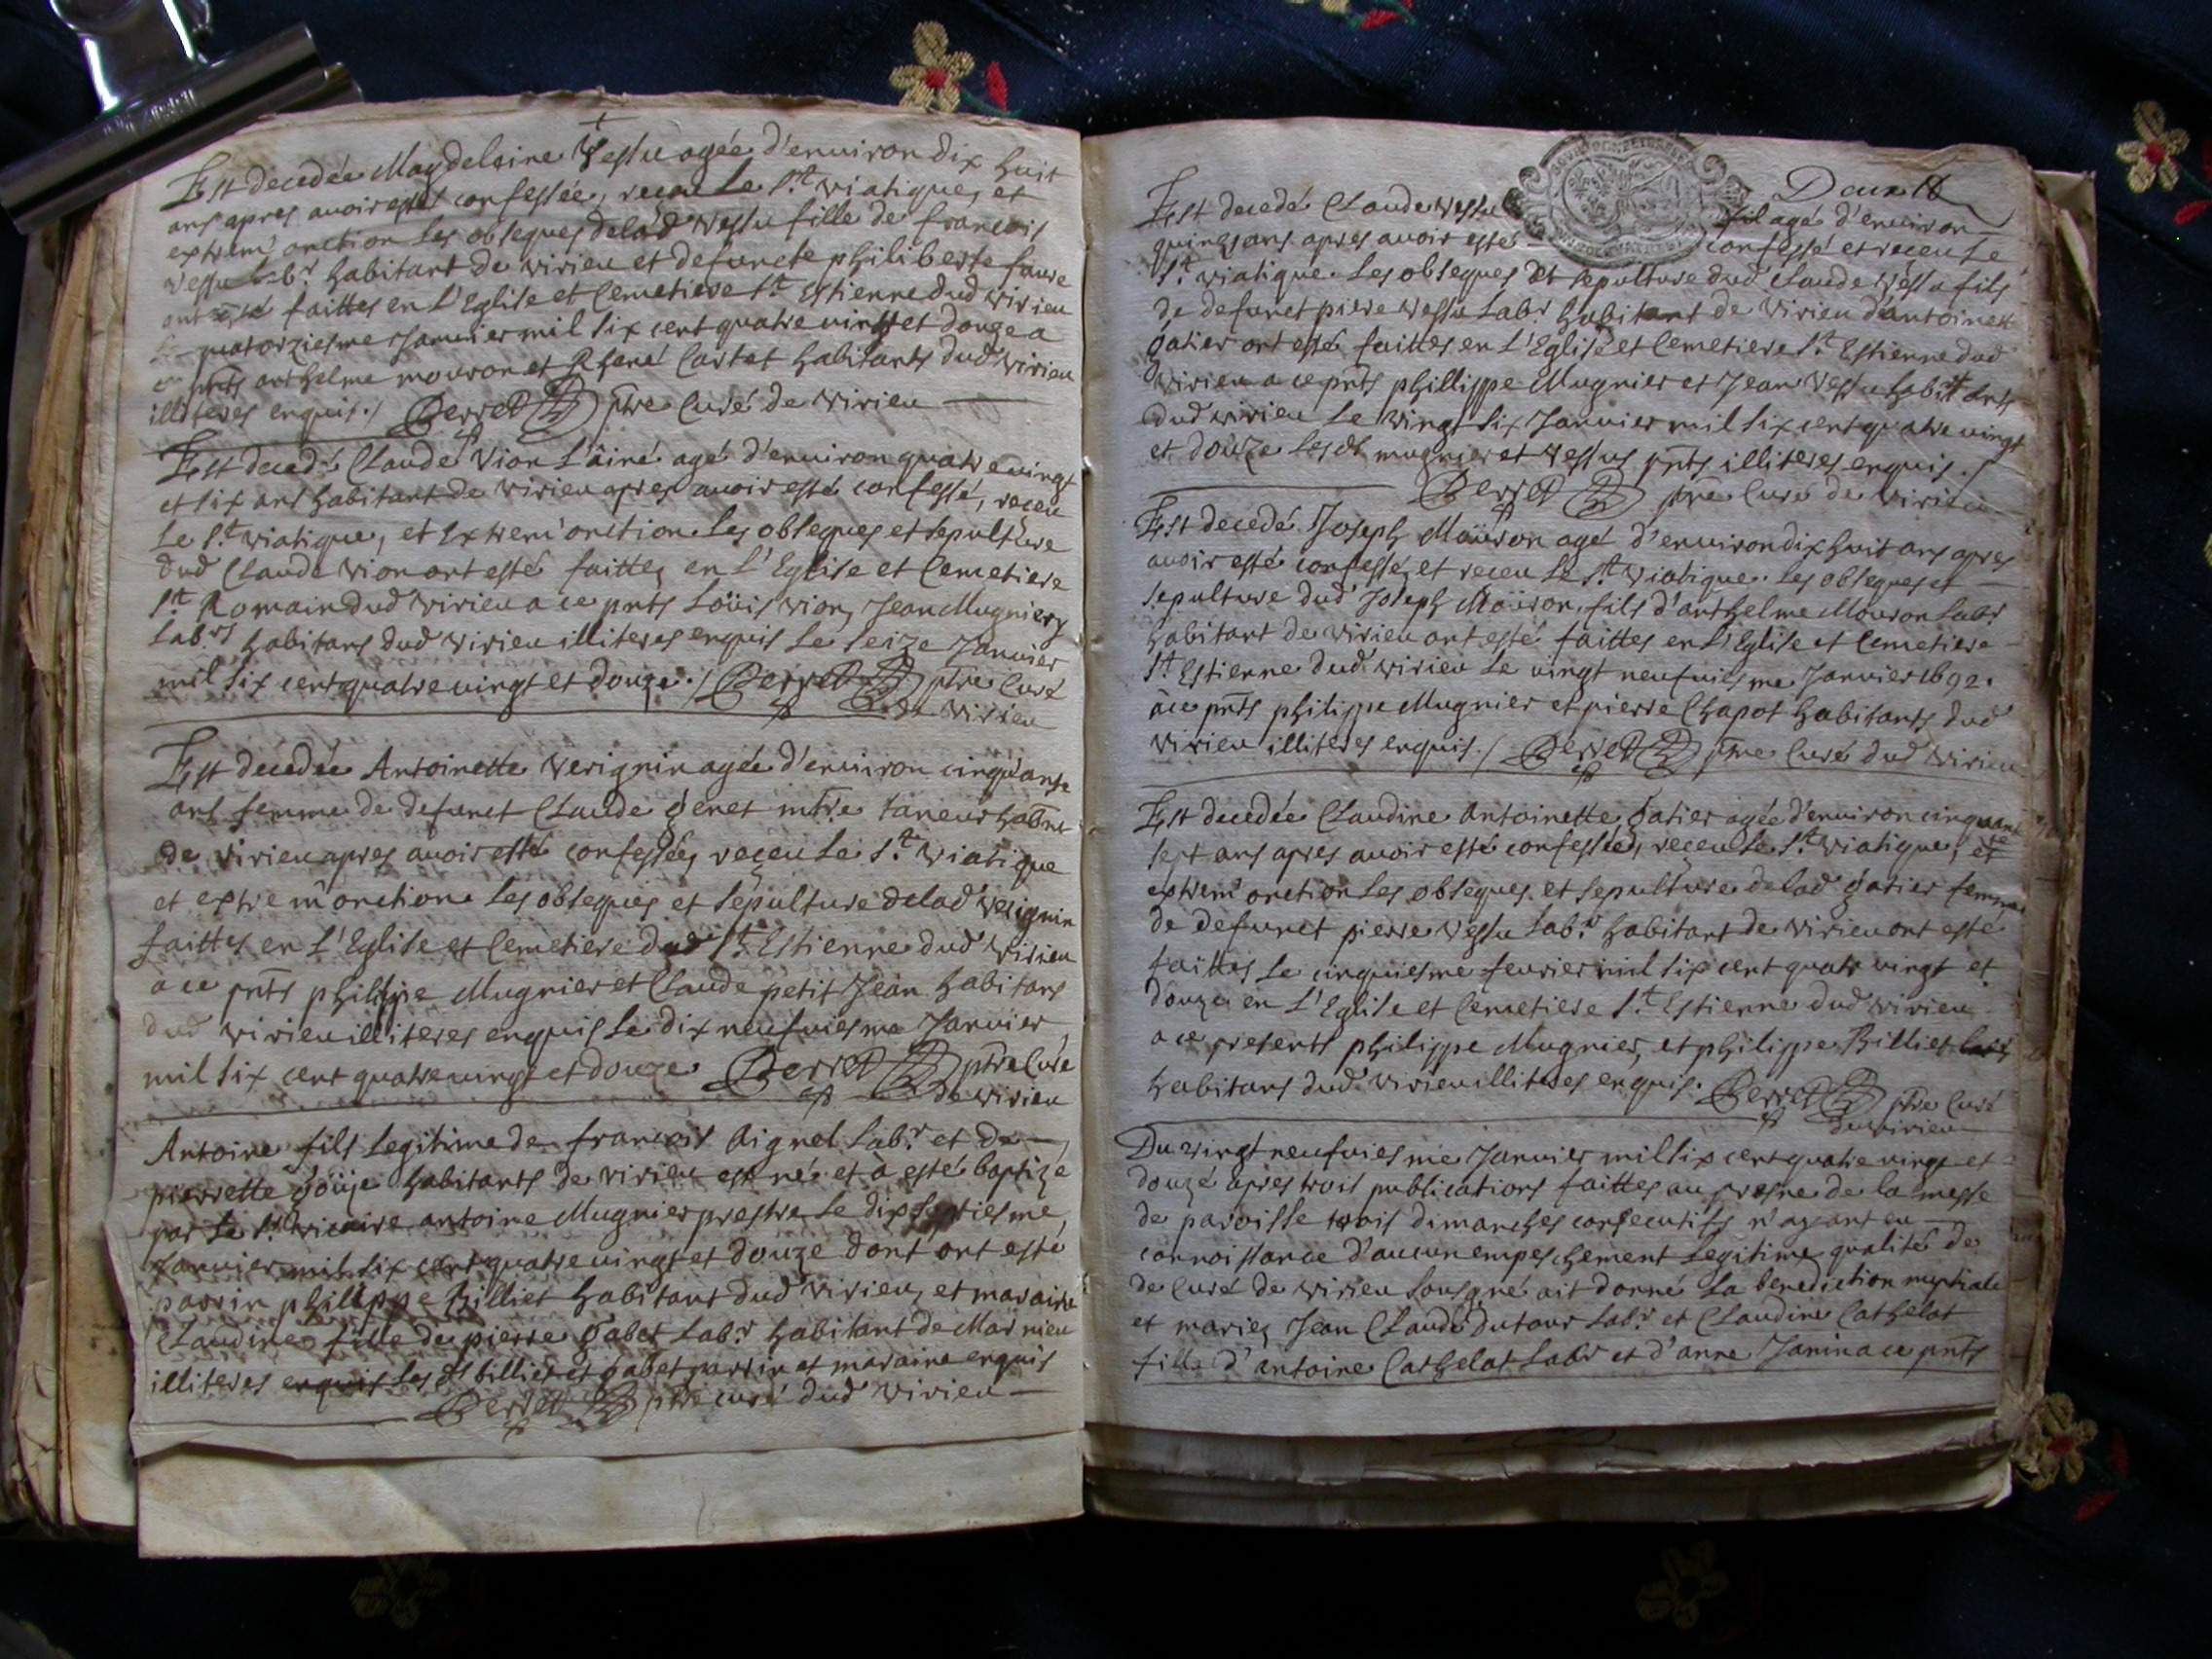 Est decedée Magdelaine Vessu agée d'environ dix huit
ans apres avoir esté confessée, receu le St viatique, et
extrem' onction les obseques de lad Vessu fille de francois
Vessu labr habitant de virieu et defuncte philiberte faure
ont esté faittes en l'Eglise et Cemetiere St Estienne dud virieu
quatorziesme Janvier mil six cent quatre vingt et douze a
ce pnts anthelme mouron et Rhené Cartat habitants dud virieu
illiteres enquis ./ Perret ptre Curé de virieu
Est decedé Claude Vion L'ainé agé d'environ quatre vingt
et six ans habitant de virieu apres avoir esté confessé, receu
le St viatique, et Extrem' onction les obseques et sepulture
dud Claude Vion ont esté faittes en L'Eglise et Cemetiere
St Romain dud virieu a ce pnts Loüis vion, Jean Mugniery
Labrs habitans dud virieu illiteres enquis le seize Janvier
mil six cent quatre vingt et douze ./ Perret ptre Curé
de virieu
Est decedée Antoinette Verignin agée d'environ cinquante
ans femme de defunct Claude genet mtre taneur habnt
de virieu apres avoir esté confessée, reçeu le St Viatique
et extre m'onction Les obseques et sepulture de lad verignin
faittes en L'Eglise et Cemetiere dud St Estienne dud Virieu
a ce pnts philippe Mugnier et Claude petit Jean habitans
dud virieu illiteres enquis le dix neufviesme Janvier
mil six cent quatre vingt et douze Perret ptre Curé
de virieu
Antoine fils legitime de francois Aignel Labr et de
pierrette goüje habitants de virieu est né et à esté baptizé
par le Sr vicaire antoine Mugnier prestre le dixseptiesme
Janvier mil six cent quatre vingt et douze dont ont esté
parrin philippe Billiet habitant dud virieu, et maraine
Claudine fille de pierre gabet Labr habitant de Marnieu
illiteres enquis les dt billiet et gabet parrin et maraine enquis
Perret ptre curé dud virieu
Deux 18
Est decedé Claude Vessu fil agé d'environ
quinze ans apres avoir esté confessé et receu le
St viatique. Les obseques et sepulture dud Claude Vessu fils
de defunct pierre Vessu Labr habitant de Virieu d'antoinett
gatier ont esté faittes en L'Eglise et Cemetiere St Estienne dud
Virieu a ce pnts phillippe Mugnier et Jean Vessu habitants
dud virieu le vingt six Janvier mil six cent quatre vingt
et douze Lesdt mugnier et Vessus pnts illiteres enquis ./
Perret ptre Curé de virieu
Est decedé Joseph Moüron agé d'environ dix huit ans apres
avoir esté confessé, et receu le St Viatique. Les obseques et
sepulture dud Joseph Moüron, fils d'anthelme Mouron Labr
habitant de virieu ont esté faittes en L'Eglise et Cemetiere
St Estienne dud virieu le vingt neufviesme Janvier 1692.
à ce pnts philippe Mugnier et pierre Chapot habitants dud
virieu illiteres enquis ./ Perret ptre Curé dud virieu
Est decedée Claudine Antoinette Gatier agée d'environ cinquante
sept ans apres avoir esté confessée, reçeu le St viatique, et
extrem' onction Les obseques et sepulture de lad gatier femme
de defunct pierre Vessu Labr habitant de Virieu ont esté
faittes le cinquiesme fevrier mil six cent quatr vingt et
douze en L'Eglise et Cemetiere St Estienne dud virieu
a ce presents philippe Mugnier, et philippe Billiet
habitans dud virieu illiteres enquis. Perret ptre Curé
du virieu
Du vingt neufviesme Janvier mil six cent quatre vingt et
douze apres trois publications faittes au prosne de la messe
de paroisse trois dimanches consecutifs n'ayant eu
connoissance d'aucun empeschement Legitime qualité de
de Curé de virieu sousgné ait donné La benediction nuptiale
et mariez Jean Claude Dutour Labr et Claudine Cathelat
fille d'antoine Cathelat Labr et d'anne Janin a ce pnts